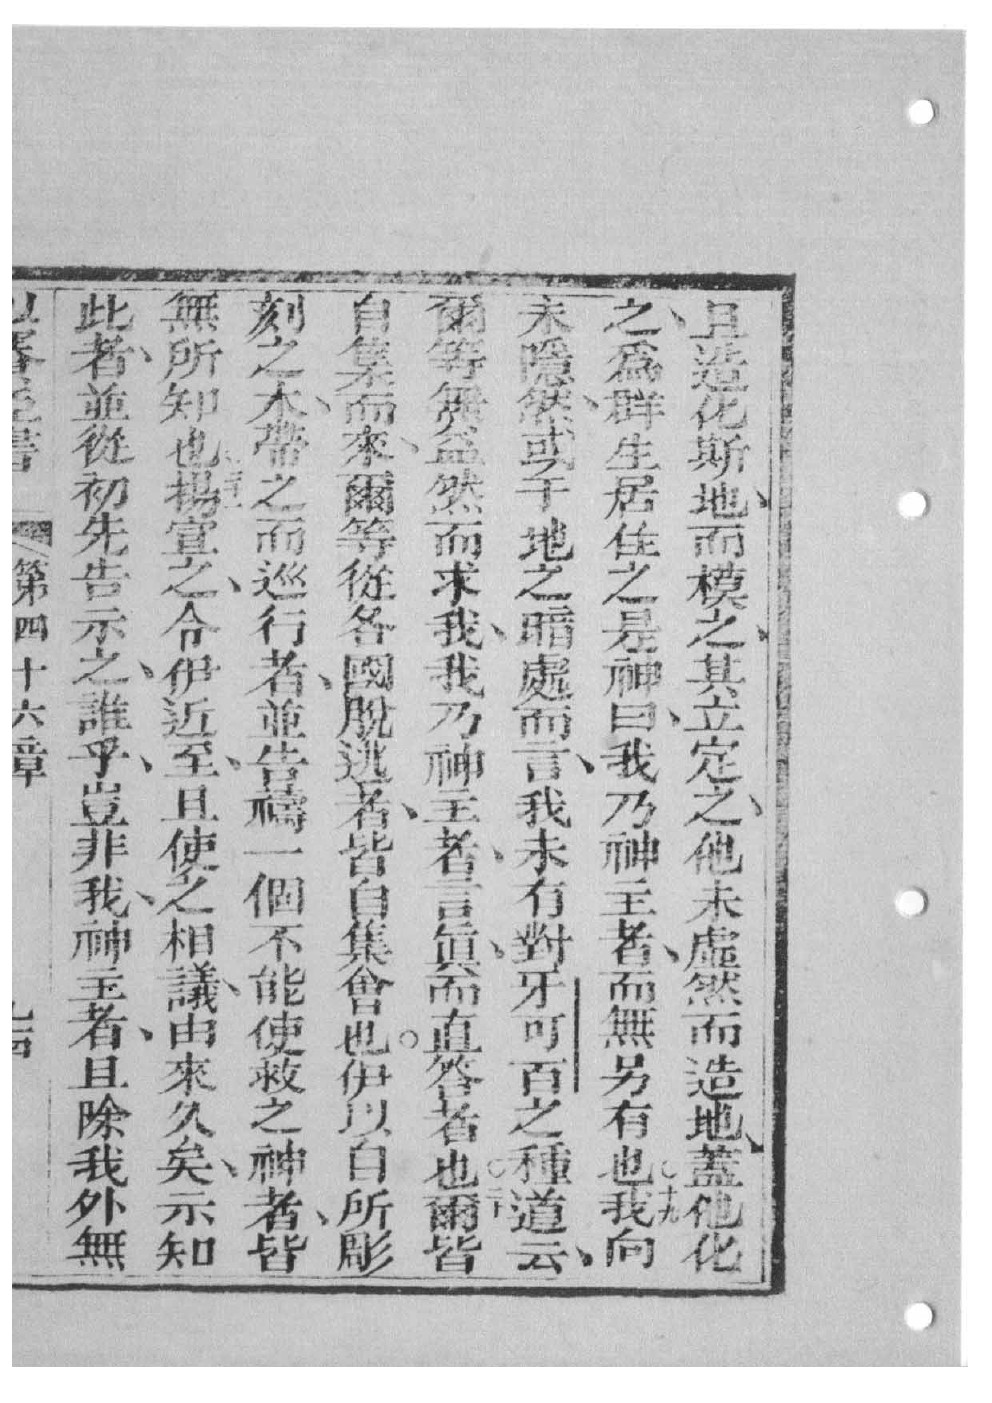 且造化斯地、而模之、其立定之、他未虛然而造地、蓋他化
之、爲群生居住之是神曰、我乃神主者、而無另有也。十九我向
未隱然、或于地之暗處而言、我未有對牙可百之種道云、
爾等無益然而求我、我乃神主者、言眞、而直答者也。二十爾皆
自集而來、爾等從各國脫逃者、皆自集會也。伊以自所彫
刻之木、帶之而巡行者、並告禱一個不能使救之神者、皆
無所知也。二十一揚宣之、令伊近至、且使之相議、由來久矣、示知
此者、並從初先告示之、誰乎、豈非我、神主者、且除我外無
第四十六章